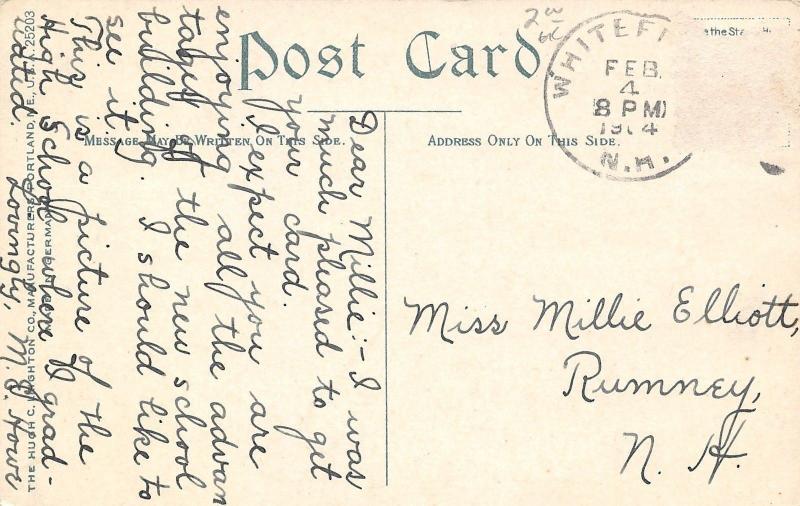 Post Card
2 00
WHITEFI
FEB.
4
8 PM
N.H.
MESSAGE MAY BE WRITTEN ON THIS SIDE.
ADDRESS ONLY ON THIS SIDE.
Dear Millie:- I was
much pleased to get
your card.
I expect you are
enjoying all the advan
tages of the new school
building. I should like to
see it.
This is a picture of the
High School where I grad-
uated.
Lovingly, M. E. Howe
Miss Millie Elliott,
Rumney,
N. H.
THE HUGH C. LEIGHTON CO., MANUFACTURERS, PORTLAND, ME., U.S.A. 25203